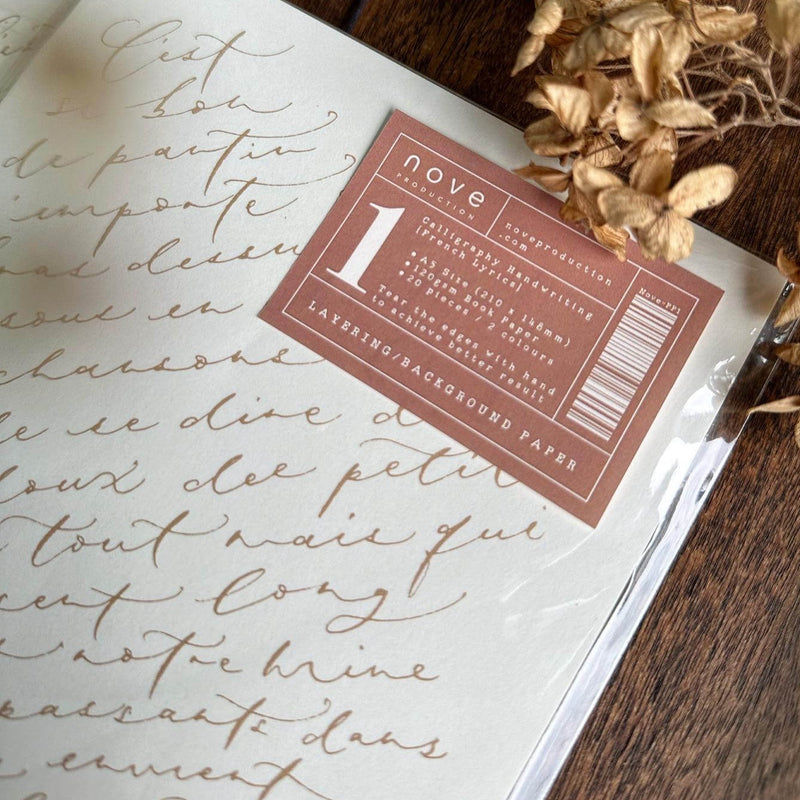 C'est
si bon
de partir
n'importe
bras dessu
sous en
chansons
se dire d
doux des petit
tout mais qui
sent long
notre mine
passants dans
envient
nove
PRODUCTION
noveproduction
.com
1
Calligraphy Handwriting
[French Lyrics]
•A5 Size (210 x 148mm)
•120gsm Book Paper
•20 Pieces / 2 colours
Tear the edges with hand
to achieve better result
Nove-PP1
LAYERING/BACKGROUND PAPER